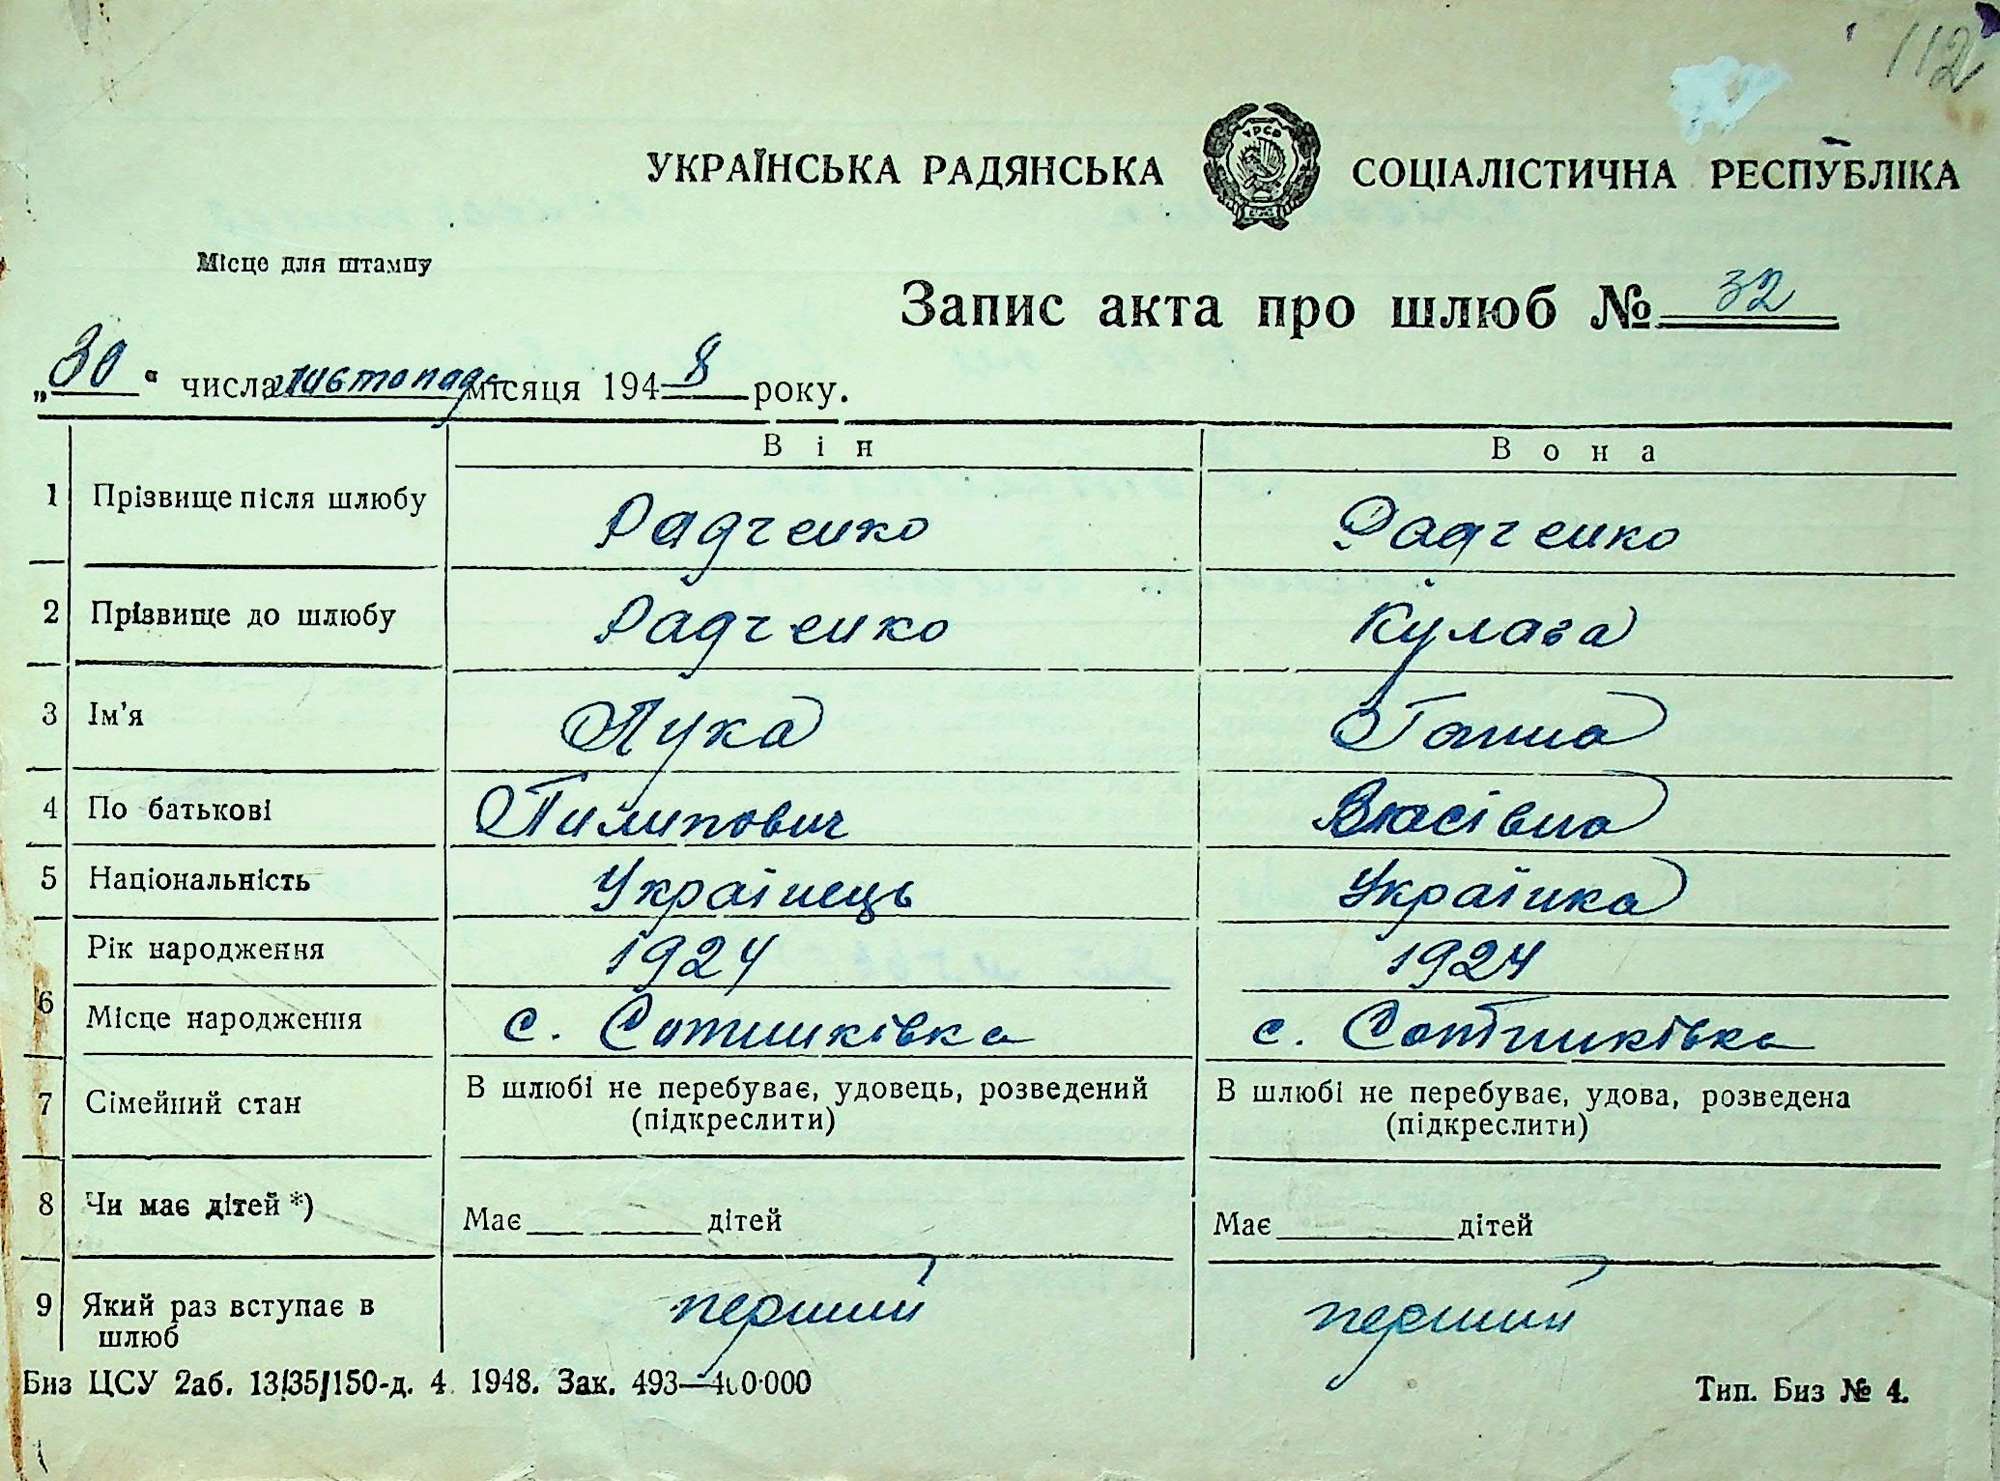 112
УКРАЇНСЬКА РАДЯНСЬКА СОЦІАЛІСТИЧНА РЕСПУБЛІКА
Місце для штампу
Запис акта про шлюб № 32
„30“ числа листопада місяця 1948 року.
Він Вона
1 Прізвище після шлюбу Радченко Радченко
2 Прізвище до шлюбу Радченко Кулага
3 Ім'я Лука Ганна
4 По батькові Пилипович Власівна
5 Національність Українець Українка
Рік народження 1924 1924
6
Місце народження с. Сотниківка с. Сотниківка
7 Сімейний стан В шлюбі не перебуває, удовець, розведений В шлюбі не перебуває, удова, розведена
(підкреслити) (підкреслити)
8 Чи має дітей *) Має дітей Має дітей
9 Який раз вступає в перший перший
шлюб
Биз ЦСУ 2аб. 13/35/150-д. 4 1948. Зак. 493—400·000 Тип. Биз № 4.